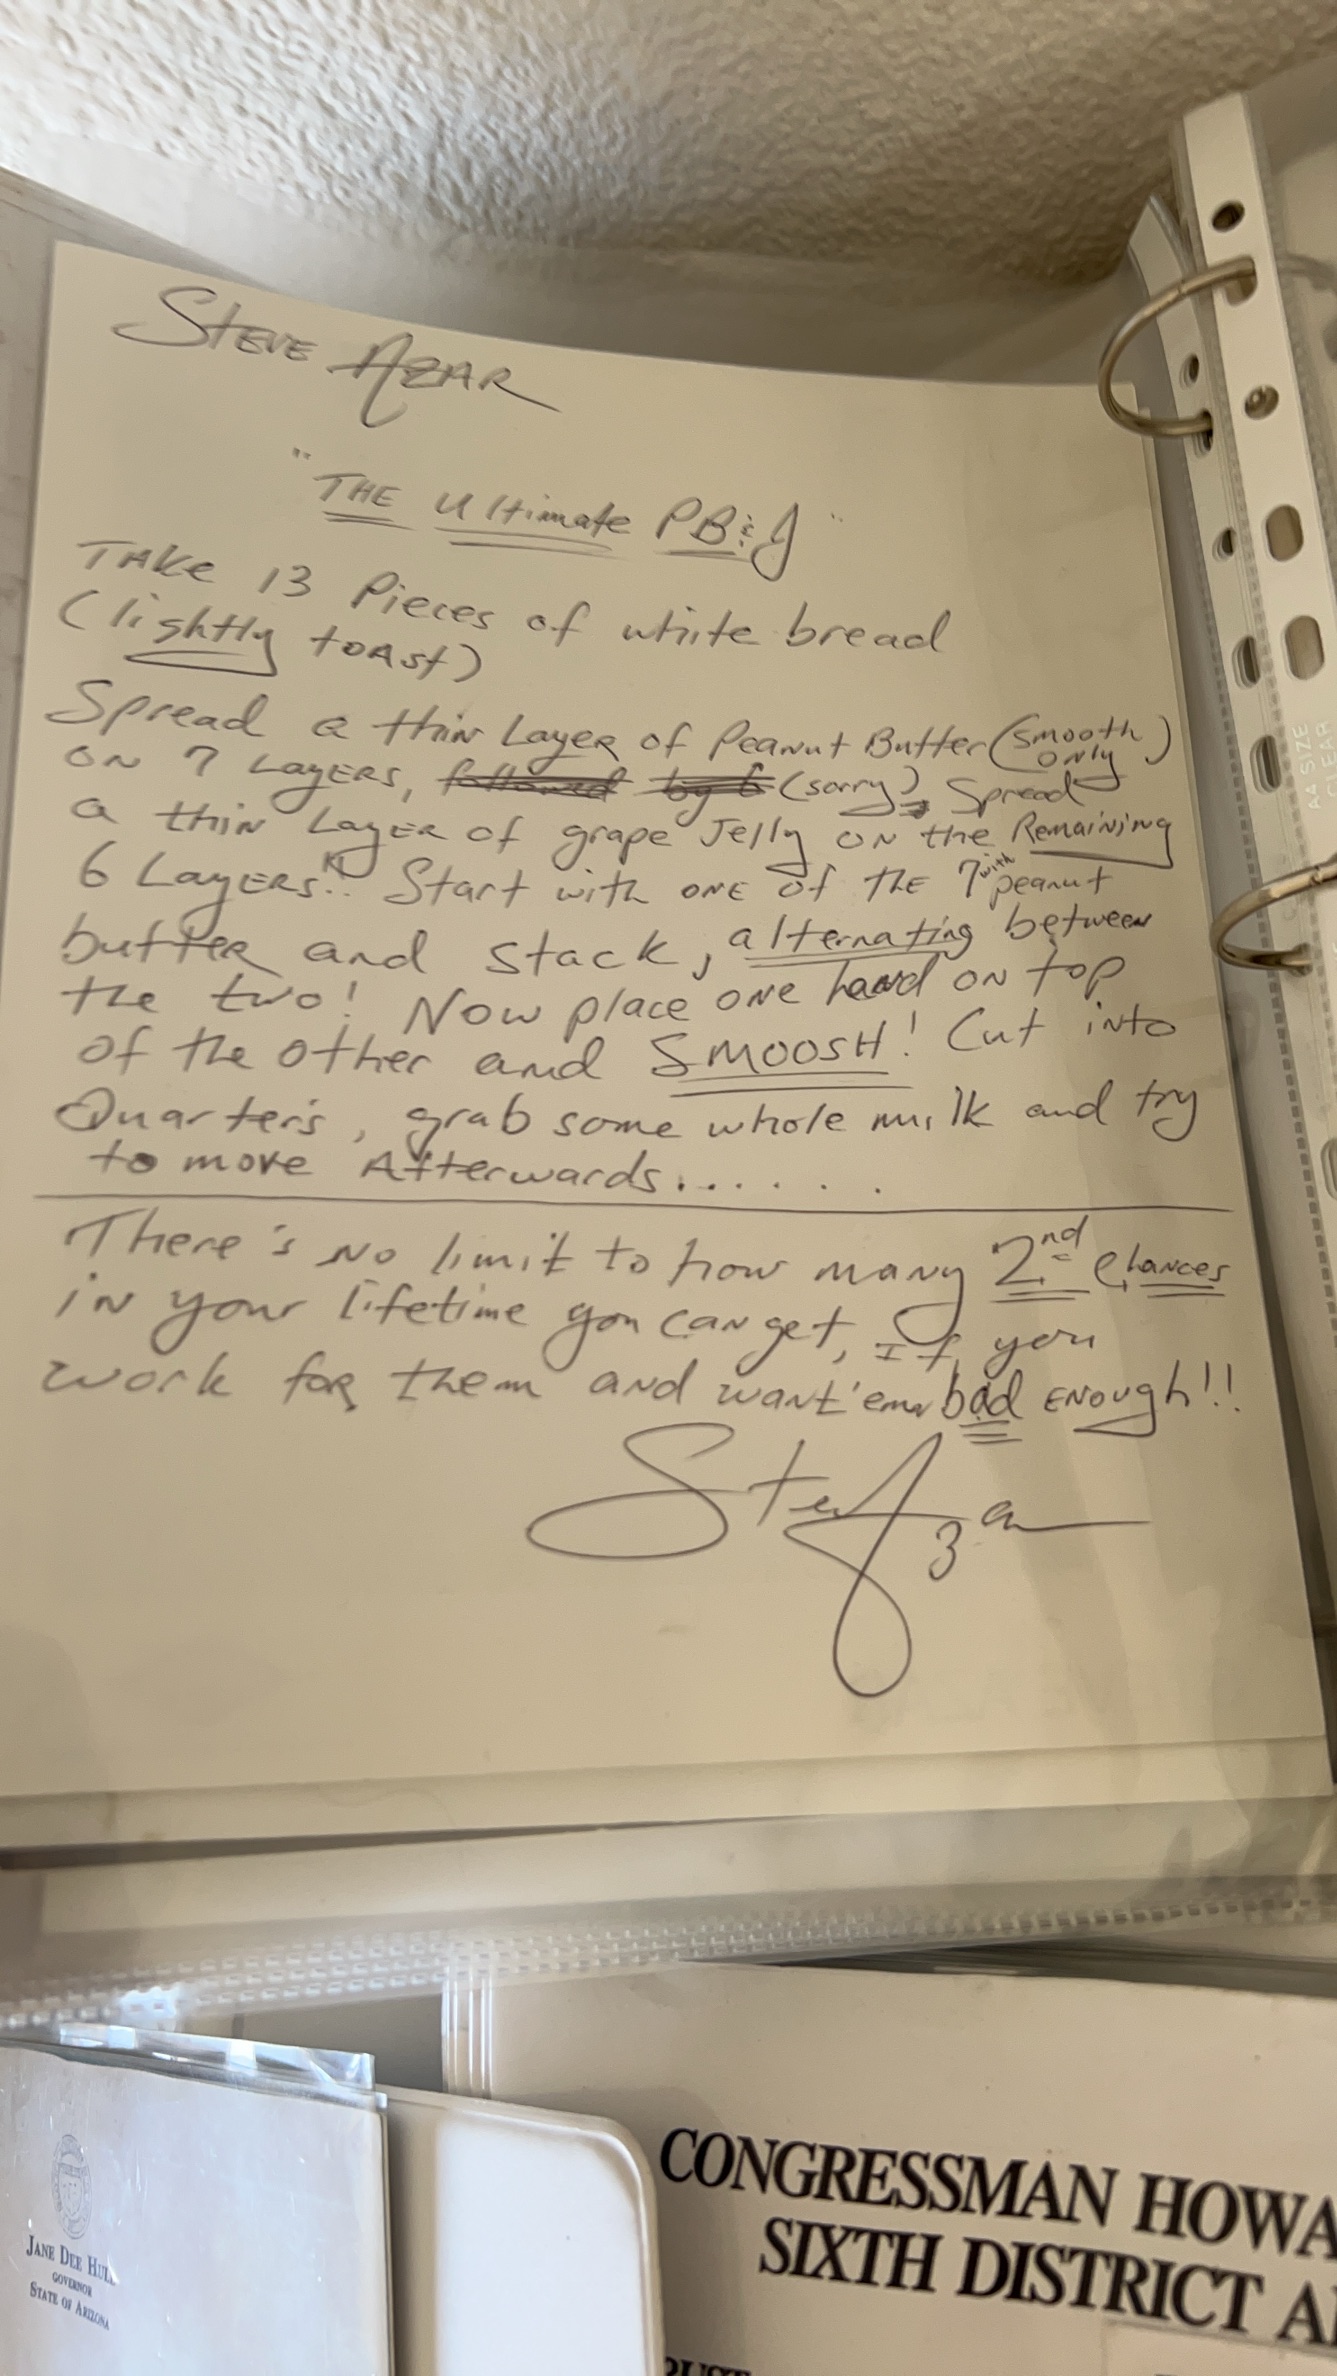 STEVE AZAR
"THE Ultimate PB&J"
TAKE 13 Pieces of white bread
(lightly toast)
Spread a thin Layer of Peanut Butter (smooth only)
on 7 Layers, followed by 6 (sorry), Spread
a thin Layer of grape Jelly on the Remaining
6 Layers!! Start with one of the 7 with peanut
butter and stack, alternating between
the two! Now place one hand on top
of the other and SMOOSH! Cut into
Quarters, grab some whole milk and try
to move Afterwards......
There's no limit to how many 2nd chances
in your lifetime you can get, If you
work for them and want 'em bad enough!!
Steve Azar
A4 SIZE
CLEAR
CONGRESSMAN HOWA
SIXTH DISTRICT A
JANE DEE HULL
GOVERNOR
STATE OF ARIZONA